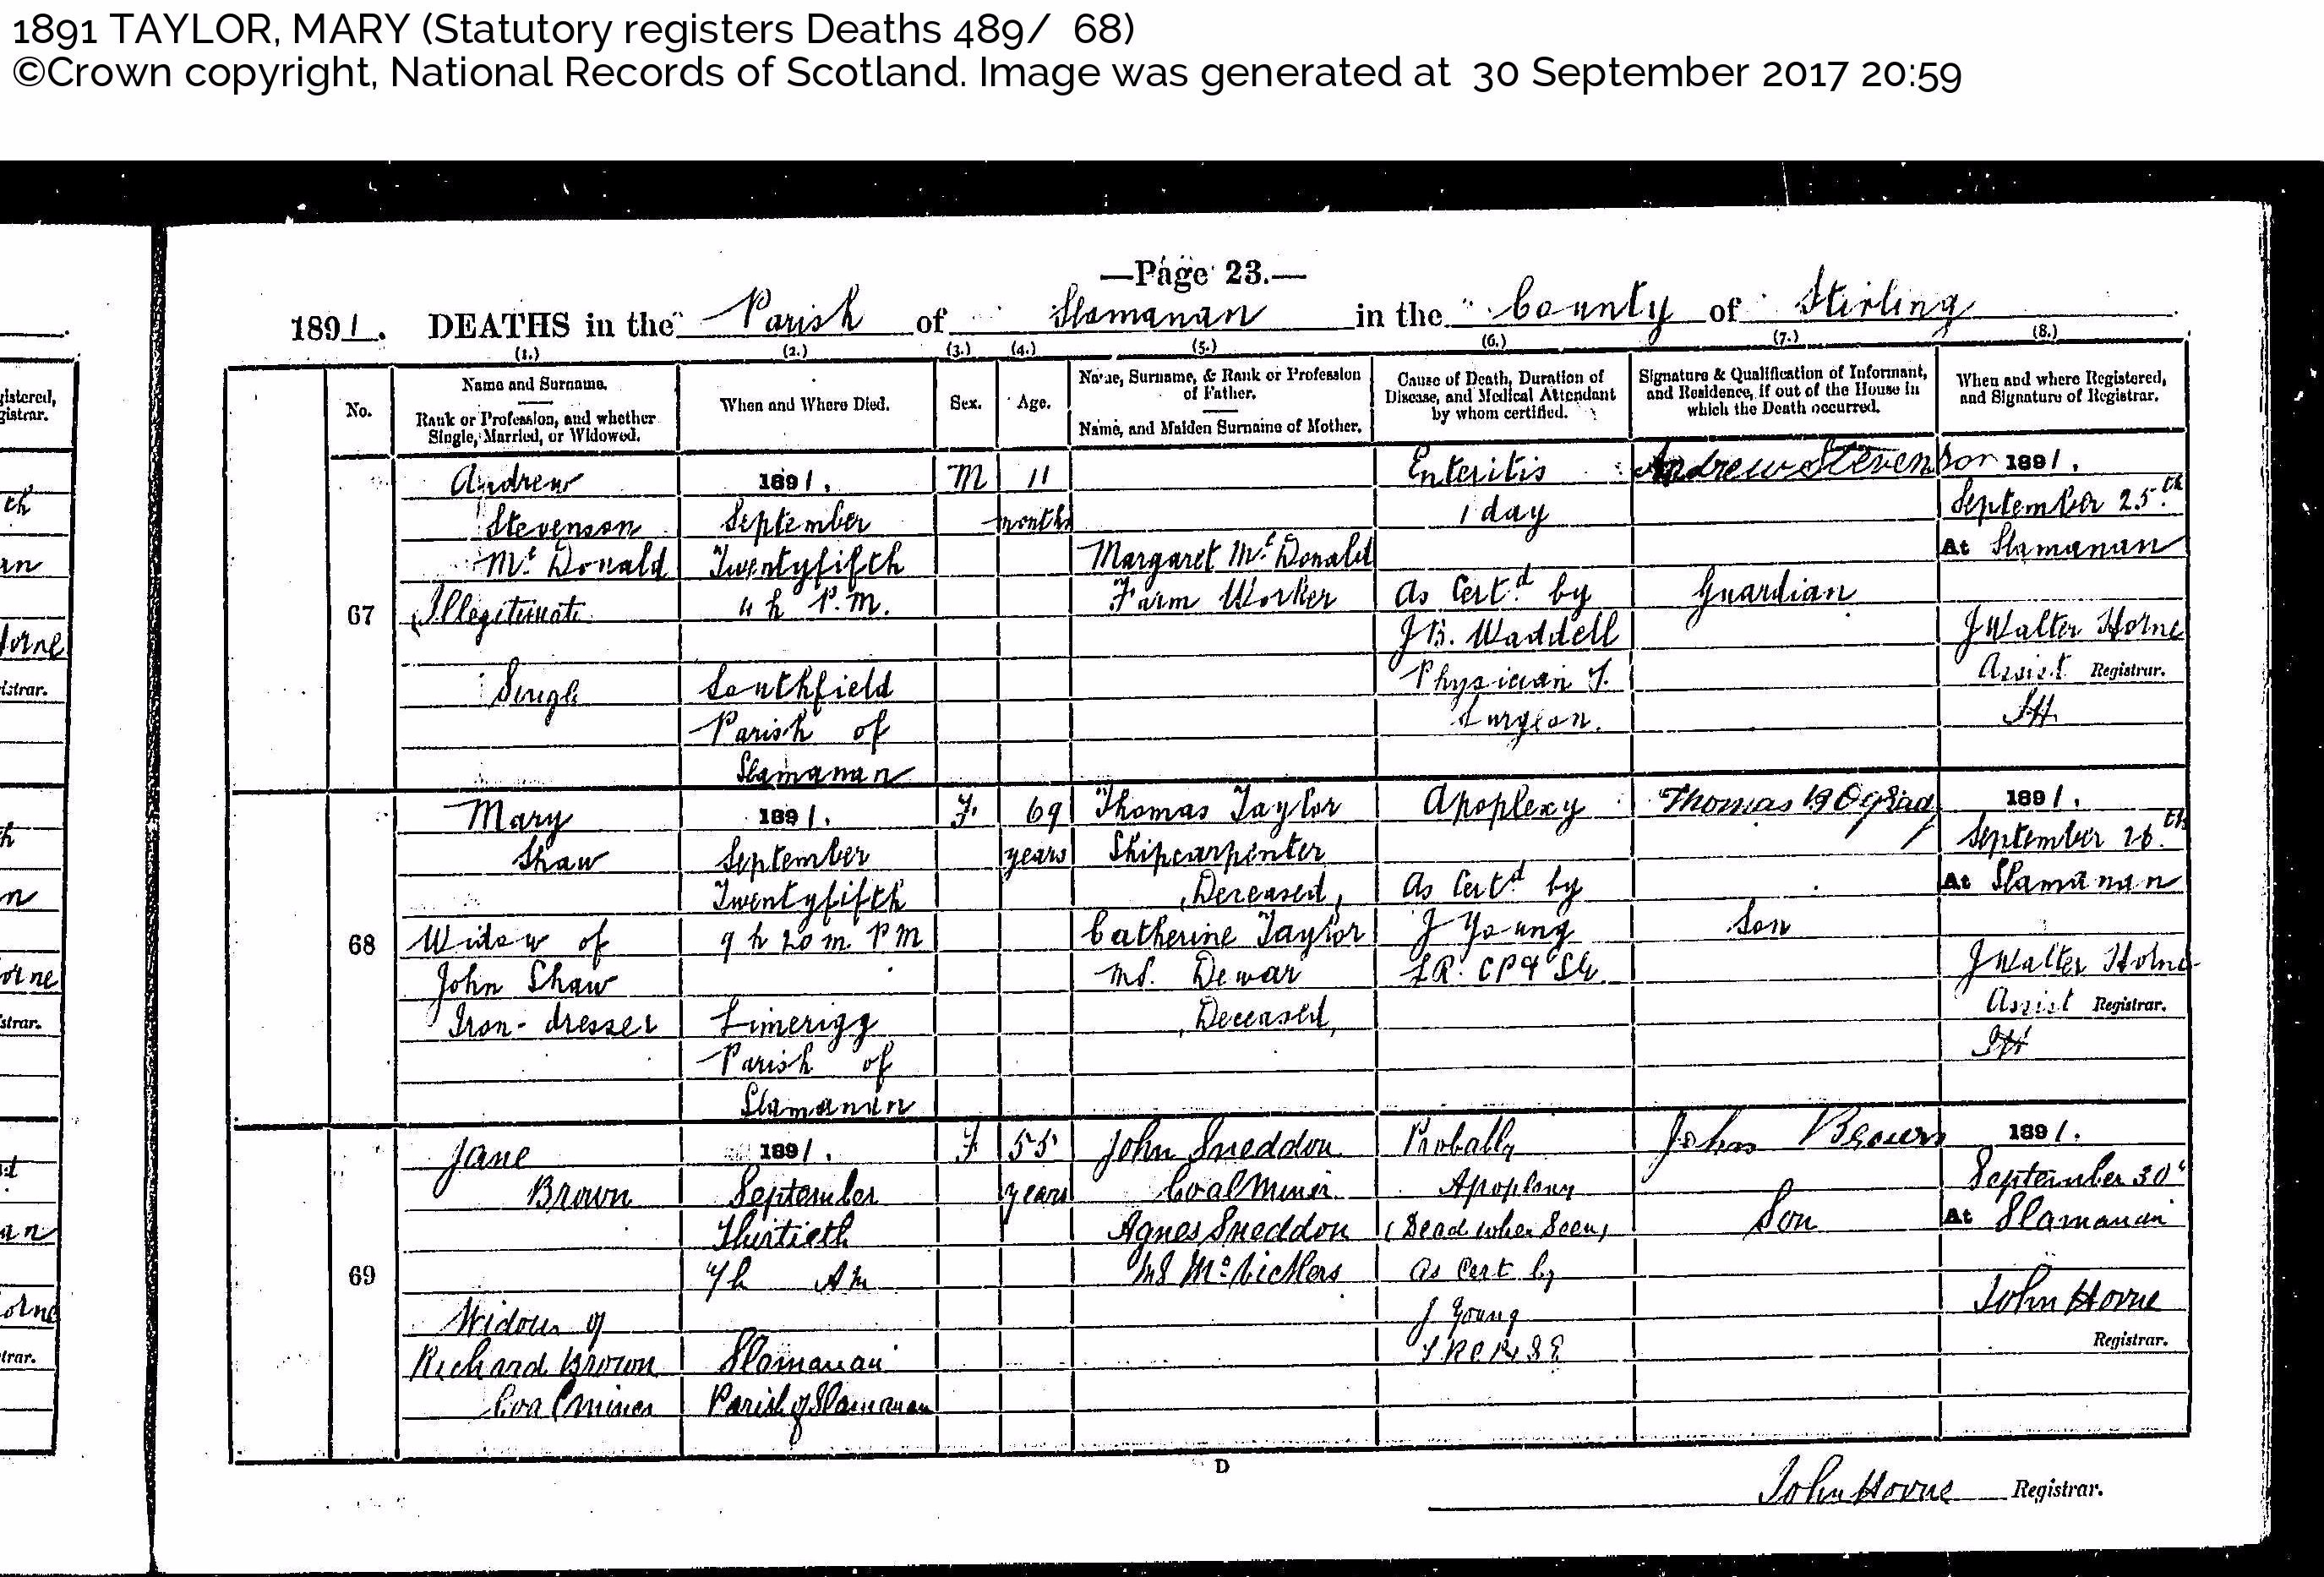 1891 TAYLOR, MARY (Statutory registers Deaths 489/ 68)
©Crown copyright, National Records of Scotland. Image was generated at 30 September 2017 20:59
—Page 23.—
1891. DEATHS in the Parish of Slamanan in the County of Stirling
(1.) (2.) (3.) (4.) (5.) (6.) (7.) (8.)
No.
Name and Surname.
Rank or Profession, and whether
Single, Married, or Widowed.
When and Where Died.
Sex.
Age.
Name, Surname, & Rank or Profession
of Father.
Name, and Maiden Surname of Mother.
Cause of Death, Duration of
Disease, and Medical Attendant
by whom certified.
Signature & Qualification of Informant,
and Residence, if out of the House in
which the Death occurred.
When and where Registered,
and Signature of Registrar.
67
Andrew
Stevenson
Mc Donald
Illegitimate
Single
1891.
September
Twentyfifth
4 h P.M.
Southfield
Parish of
Slamanan
M
11
months
Margaret Mc Donald
Farm Worker
Enteritis
1 day
As Certd by
J B. Waddell
Physician &
Surgeon.
Andrew Stevenson
Guardian
1891.
September 25th
At Slamanan
J Walter Horne
Assist Registrar.
JH
68
Mary
Shaw
Widow of
John Shaw
Iron-dresser
1891.
September
Twentyfifth
9 h 20 m PM
Limerigg
Parish of
Slamanan
F.
69
years
Thomas Taylor
Shipcarpenter
(Deceased)
Catherine Taylor
MS. Dewar
(Deceased)
Apoplexy
As Certd by
J Young
L.R.CP & SE.
Thomas B O'Grady
Son
1891.
September 26th
At Slamanan
J Walter Horne
Assist Registrar.
JH
69
Jane
Brown
Widow of
Richard Brown
Coal miner
1891.
September
Thirtieth
7h AM
Slamanan
Parish of Slamanan
F
55
years
John Sneddon
Coal Miner
Agnes Sneddon
MS
Probably
Apoplexy
(Dead when Seen)
As Cert by
J Young
L R C P & S E
John Brown
Son
1891.
September 30
At Slamanan
John Horne
Registrar.
D
John Horne Registrar.